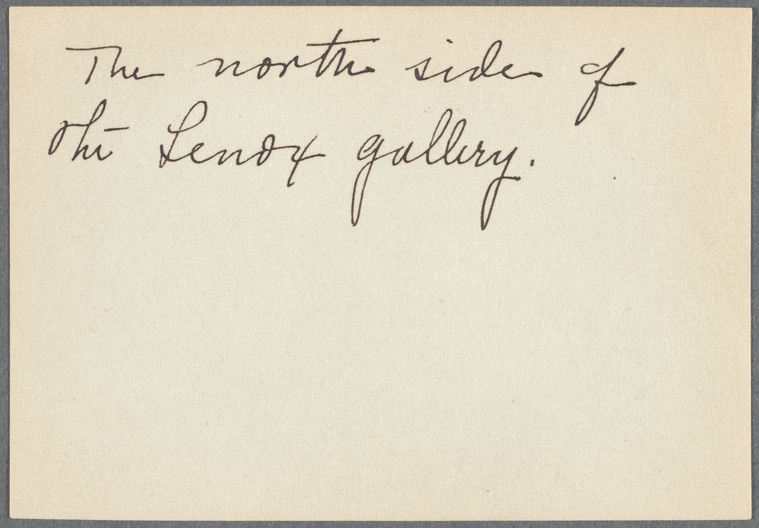 The north side of
the Lenox gallery.